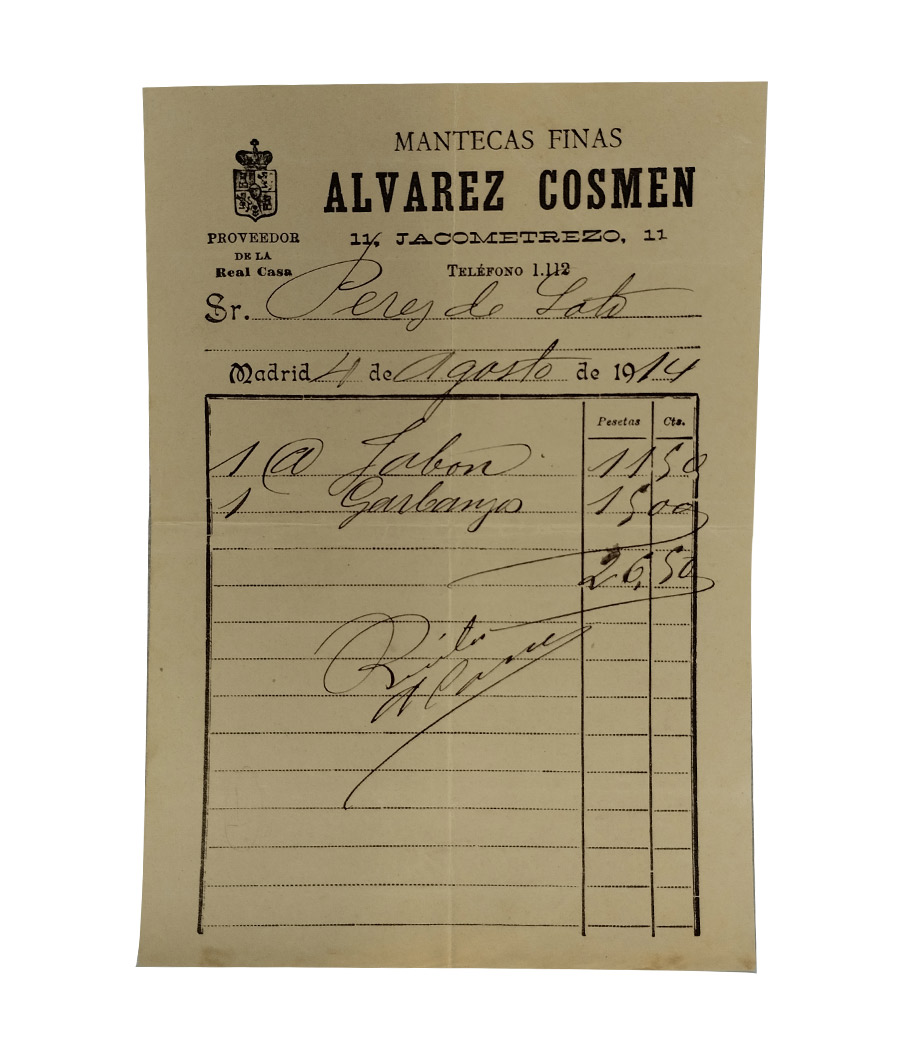 MANTECAS FINAS
ALVAREZ COSMEN
11, JACOMETREZO, 11
TELÉFONO 1.112
PROVEEDOR
DE LA
Real Casa
Sr. Perez de Soto
Madrid 4 de Agosto de 1914
Pesetas Cts.
1 @ Jabon 11 50
1 Garbanzos 15 00
26,50
Recibí